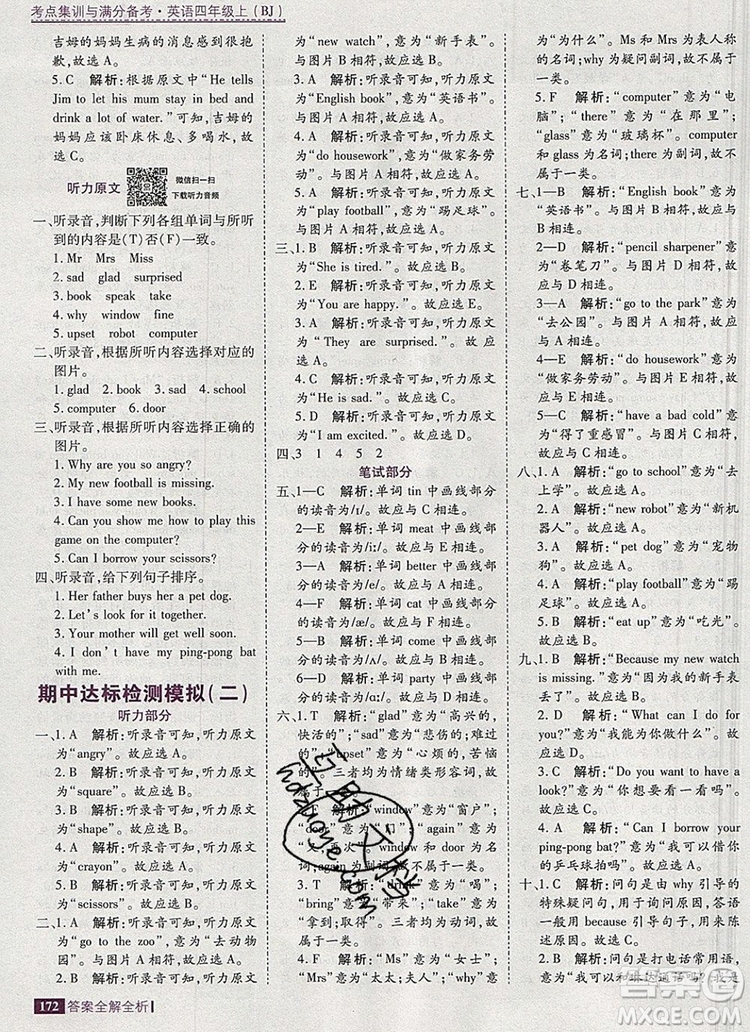 考点集训与满分备考·英语四年级上(BJ)
吉姆的妈妈生病的消息感到很抱
歉。故应选A。
5. C 解析:根据原文中“He tells
Jim to let his mum stay in bed and
drink a lot of water.”可知,吉
姆的妈妈应该卧床休息,多喝水。故
应选C。
听力原文
微信扫一扫
下载听力音频
一、听录音,判断下列各组单词与所听
到的内容是(T)否(F)一致。
1. Mr Mrs Miss
2. sad glad surprised
3. bring speak take
4. why window fine
5. upset robot computer
二、听录音,根据所听内容选择对应的
图片。
1. glad 2. book 3. sad 4. school
5. computer 6. door
三、听录音,根据所听内容选择正确的
图片。
1. Why are you so angry?
2. My new football is missing.
3. I have some new books.
4. Can you show me how to play this
game on the computer?
5. Can I borrow your scissors?
四、听录音,给下列句子排序。
1. Her father buys her a pet dog.
2. Let's look for it together.
3. Your mother will get well soon.
4. I don't have my ping-pong bat
with me.
期中达标检测模拟(二)
听力部分
一、1. A 解析:听录音可知,听力原文
为“angry”。故应选A。
2. B 解析:听录音可知,听力原文
为“square”。故应选B。
3. B 解析:听录音可知,听力原文
为“shape”。故应选B。
4. A 解析:听录音可知,听力原文
为“crayon”。故应选A。
5. B 解析:听录音可知,听力原文
为“scissors”。故应选B。
二、1. A 解析:听录音可知,听力原文
为“go to the zoo”,意为“去动物
园”。与图片A相符,故应选A。
2. B 解析:听录音可知,听力原文
为“new watch”,意为“新手表”。
与图片B相符,故应选B。
3. B 解析:听录音可知,听力原文
为“English book”,意为“英语书”。
与图片B相符,故应选B。
4. A 解析:听录音可知,听力原文
为“do housework”,意为“做家务劳
动”。与图片A相符,故应选A。
5. A 解析:听录音可知,听力原文
为“play football”,意为“踢足球”。
与图片A相符,故应选A。
三、1. B 解析:听录音可知,听力原文
为“She is tired.”。故应选B。
2. E 解析:听录音可知,听力原文
为“You are happy.”。故应选E。
3. A 解析:听录音可知,听力原文
为“They are surprised.”。故应
选A。
4. C 解析:听录音可知,听力原文
为“He is sad.”。故应选C。
5. D 解析:听录音可知,听力原文
为“I am excited.”。故应选D。
四、3 1 4 5 2
笔试部分
五、1—C 解析:单词tin中画线部分
的读音为/ɪ/。故应与C相连。
2—E 解析:单词meat中画线部
分的读音为/i:/。故应与E相连。
3—A 解析:单词better中画线部
分的读音为/e/。故应与A相连。
4—F 解析:单词cat中画线部分
的读音为/æ/。故应与F相连。
5—B 解析:单词come中画线部
分的读音为/ʌ/。故应与B相连。
6—D 解析:单词party中画线部
分的读音为/ɑ:/。故应与D相连。
六、1. T 解析:“glad”意为“高兴的,
快活的”;“sad”意为“悲伤的,难过
的”;“upset”意为“心烦的,苦恼
的”。三者均为情绪类形容词,故
属于一类。
2. F 解析:“window”意为“窗户”;
“door”意为“门”;“again”意为
“再一次”。window和door为名
词;again为副词。故不属于一类。
3. T 解析:“drink”意为“喝”;
“bring”意为“带来”;“take”意为
“拿到;取到”。三者均为动词,故
属于一类。
4. F 解析:“Ms”意为“女士”;
“Mrs”意为“太太;夫人”;“why”意
为“为什么”。Ms和Mrs为表人称
的名词;why为疑问副词,故不属于
一类。
5. F 解析:“computer”意为“电
脑”;“there”意为“在那里”;
“glass”意为“玻璃杯”。computer
和glass为名词;there为副词,故不
属于一类。
七、1—B 解析:“English book”意为
“英语书”。与图片B相符,故应与
B相连。
2—D 解析:“pencil sharpener”意
为“卷笔刀”。与图片D相符,故应
与D相连。
3—A 解析:“go to the park”意为
“去公园”。与图片A相符,故应与
A相连。
4—E 解析:“do housework”意为
“做家务劳动”。与图片E相符,故
应与E相连。
5—C 解析:“have a bad cold”意
为“得了重感冒”。与图片C相符,
故应与C相连。
八、1. A 解析:“go to school”意为“去
上学”。故应选A。
2. A 解析:“new robot”意为“新机
器人”。故应选A。
3. A 解析:“pet dog”意为“宠物
狗”。故应选A。
4. A 解析:“play football”意为“踢
足球”。故应选A。
5. B 解析:“eat up”意为“吃光”。
故应选B。
九、1. C 解析:“Because my new watch
is missing.”意为“因为我的新手表
丢了”。故应选C。
2. D 解析:“What can I do for
you?”意为“我能为你做什么”。故
应选D。
3. B 解析:“Do you want to have a
look?”意为“你想看一看吗”。故
应选B。
4. A 解析:“Could I borrow your
ping-pong bat?”意为“我可以借你
的乒乓球拍吗”。故应选A。
十、1. A 解析:问句是由why引导的
特殊疑问句,询问原因,故答语一
般由because引导句子。故应
选A。
2. B 解析:问句是电话常用语,意
172 答案全解全析
hdzuoye.com
答案圈
MXQE.COM